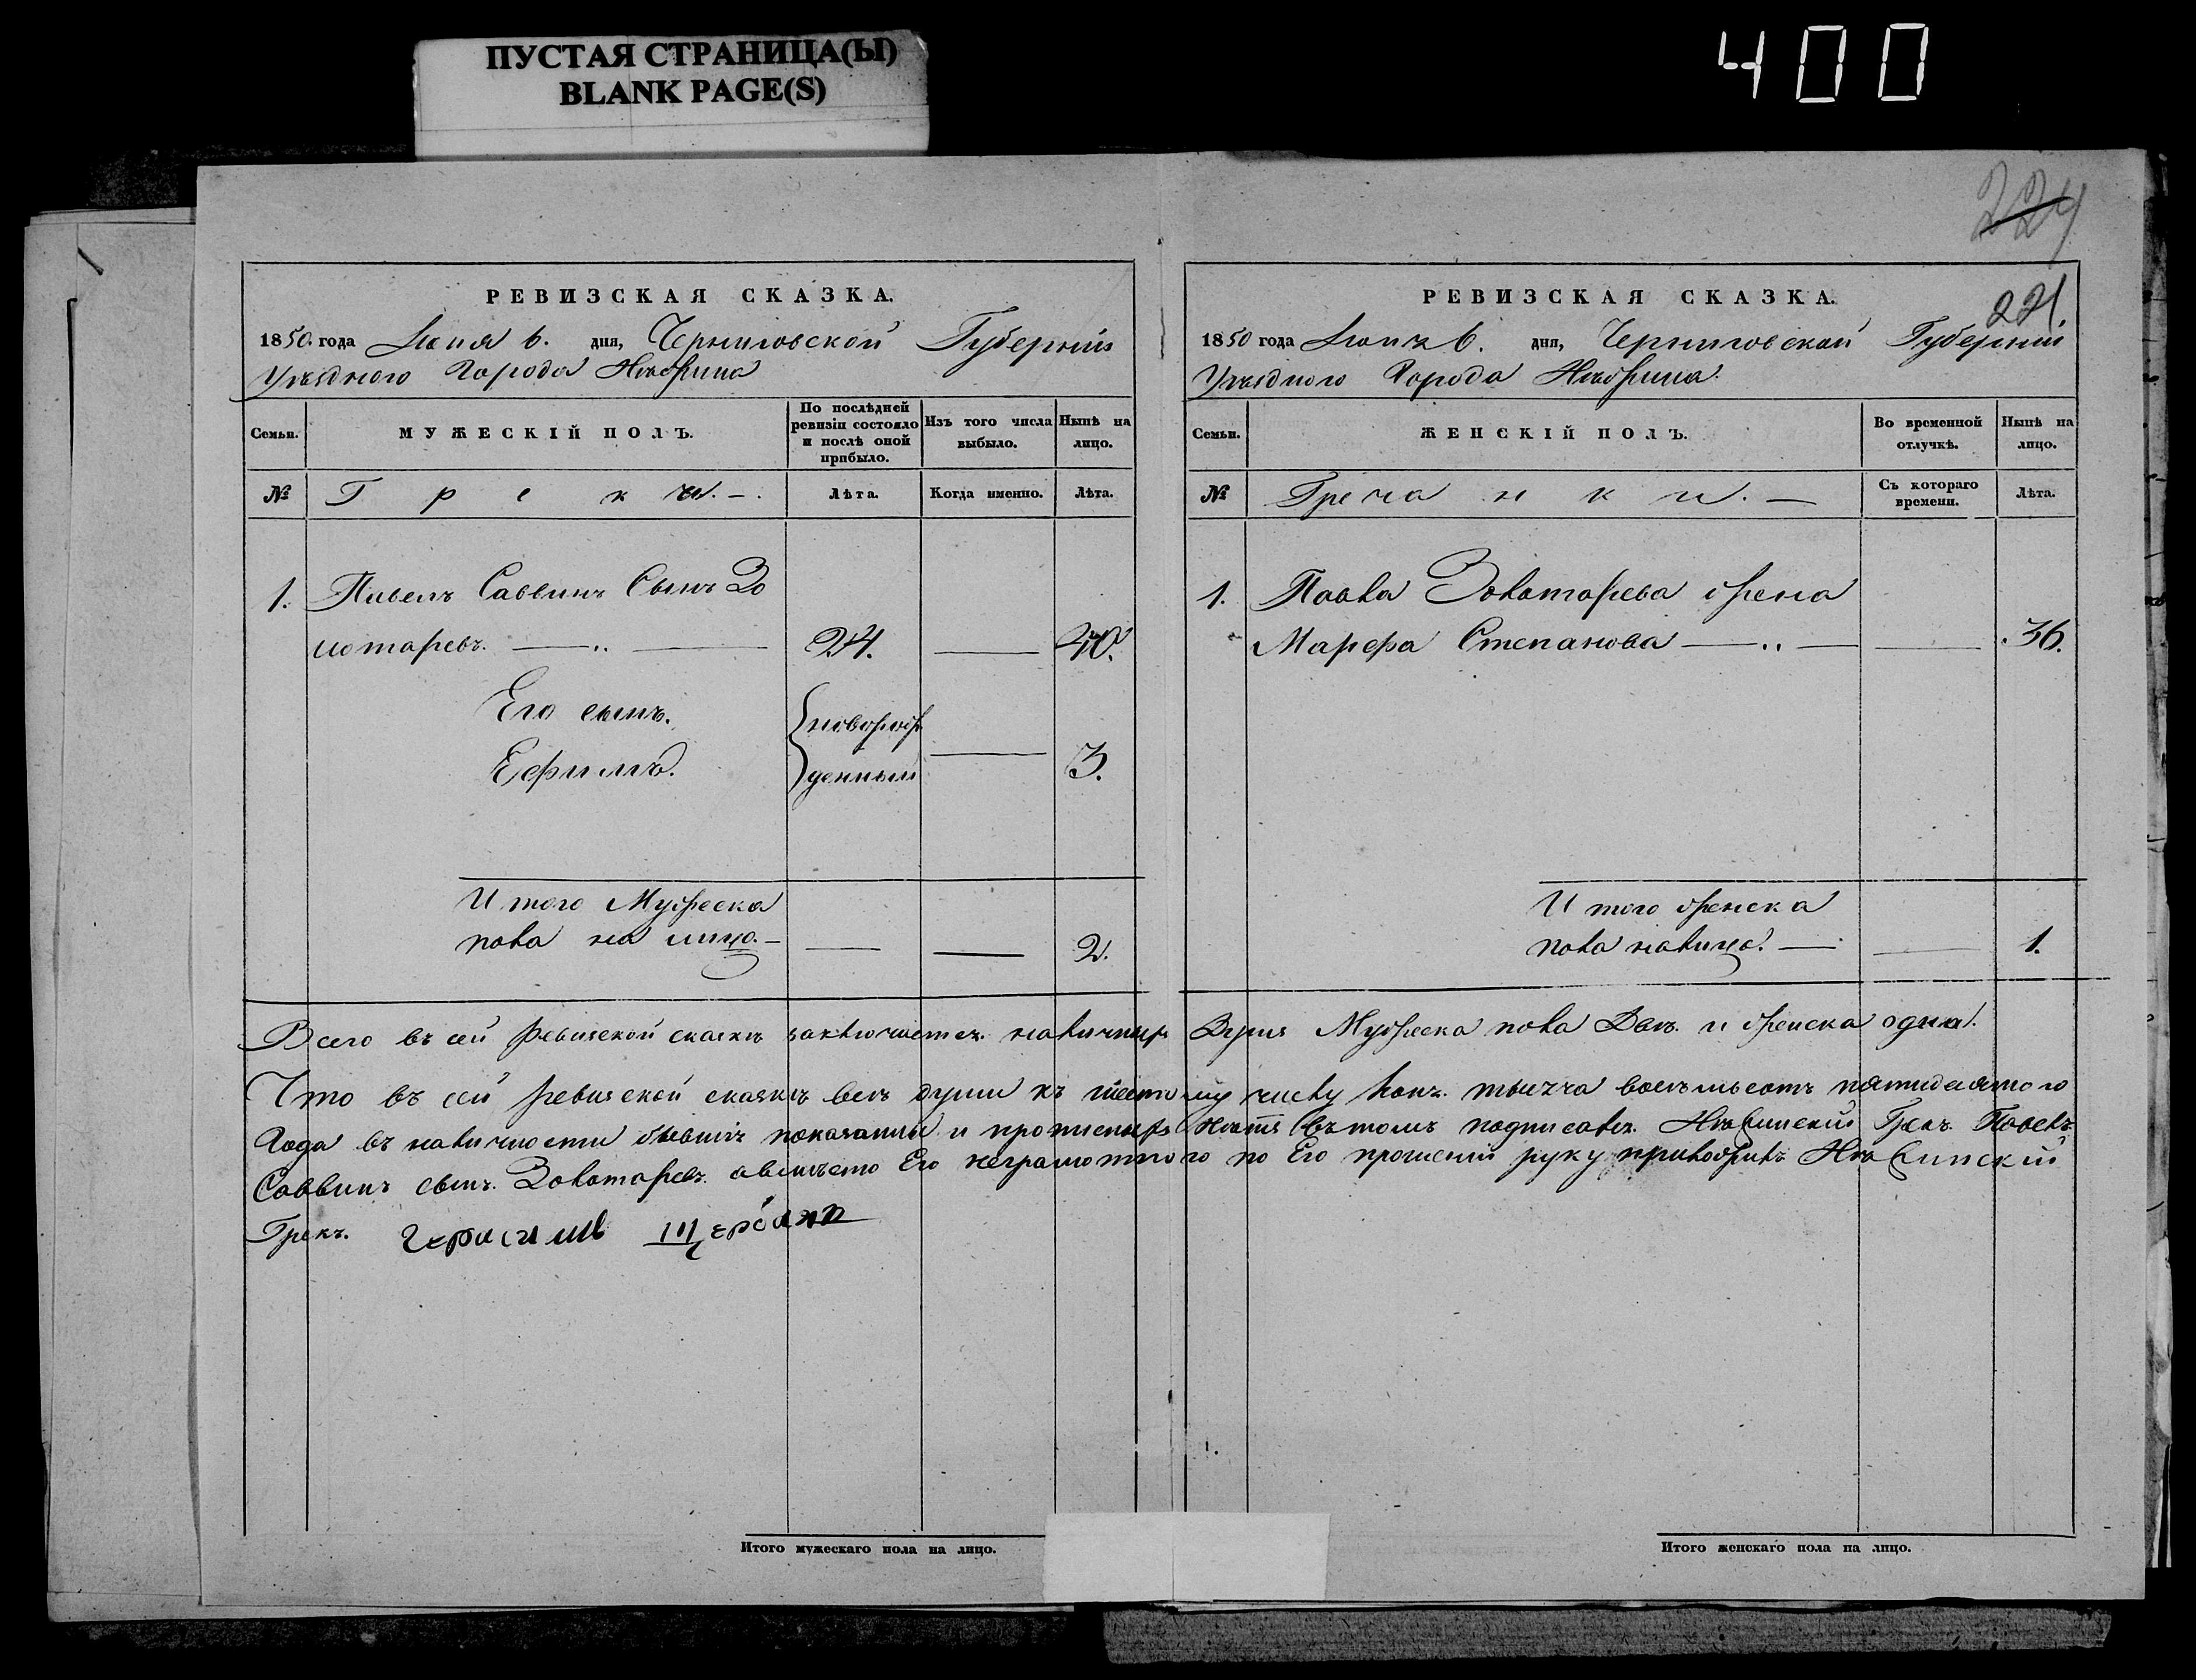 ПУСТАЯ СТРАНИЦА(Ы)
BLANK PAGE(S)
400
224
221.
РЕВИЗСКАЯ СКАЗКА.
1850. года Іюня 6. дня, Черниговской Губерніи
Уѣзднаго Города Нѣжина
Семьи.
МУЖЕСКІЙ ПОЛЪ.
По послѣдней ревизіи состояло и послѣ оной прибыло.
Изъ того числа выбыло.
Нынѣ на лицо.
№
Греки. —.
Лѣта.
Когда именно.
Лѣта.
1. Павелъ Саввинъ Сынъ Зо
лотаревъ. —..— 24. — 40.
Его сынъ. новорож
Ефимъ. денный — 3.
Итого Мужеска
пола на лицо. — — — 2.
РЕВИЗСКАЯ СКАЗКА.
1850 года Іюня 6. дня, Черниговской Губерніи
Уѣзднаго Города Нѣжина.
Семьи.
ЖЕНСКІЙ ПОЛЪ.
Во временной отлучкѣ.
Нынѣ на лицо.
№
Гречанки. —
Съ котораго времени.
Лѣта.
1. Павла Золотарева жена
Марфа Степанова —..— — 36.
Итого женска
пола налицо. — — 1.
Всего въ сей ревизской сказкѣ заключается наличныхъ Душъ Мужеска пола Двѣ. и женска одна.
Что въ сей ревизской сказкѣ всѣ души къ шестому числу Іюня тысяча восемьсотъ пятидесятого
Года въ наличности бывшіе показаны и прописныхъ Нѣтъ въ томъ подписался Нѣжинскій Грекъ Павелъ
Саввинъ сынъ Золотаревъ. авмѣсто Его неграмотного по Его прошенію руку приложилъ Нѣжинскій
Грекъ. Герасимъ
Итого мужескаго пола на лицо.
Итого женскаго пола на лицо.